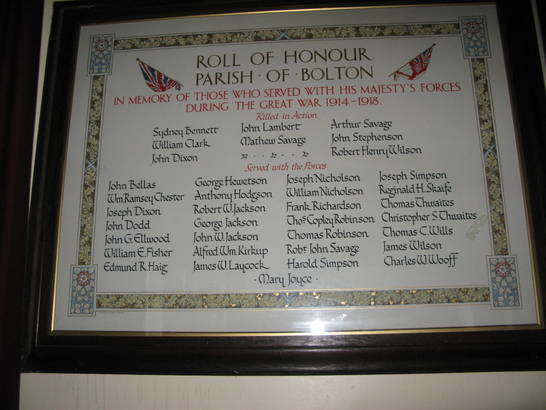 ROLL OF HONOUR
PARISH · OF · BOLTON
IN MEMORY OF THOSE WHO SERVED WITH HIS MAJESTY'S FORCES
DURING THE GREAT WAR 1914-1918.
Killed in Action
Sydney Bennett John Lambert Arthur Savage
William Clark Mathew Savage John Stephenson
John Dixon Robert Henry Wilson
Served with the Forces
John Bellas George Hewetson Joseph Nicholson Joseph Simpson
Wm. Ramsey Chester Anthony Hodgson William Nicholson Reginald H. Skaife
Joseph Dixon Robert W. Jackson Frank Richardson Thomas Thwaites
John Dodd George Jackson Thos Copley Robinson Christopher S. Thwaites
John G. Ellwood John W. Jackson Thomas Robinson Thomas C. Wills
William E. Fisher Alfred Wm. Kirkup Robt John Savage James Wilson
Edmund R. Haig James W. Laycock Harold Simpson Charles W. Wooff
· Mary Joyce ·